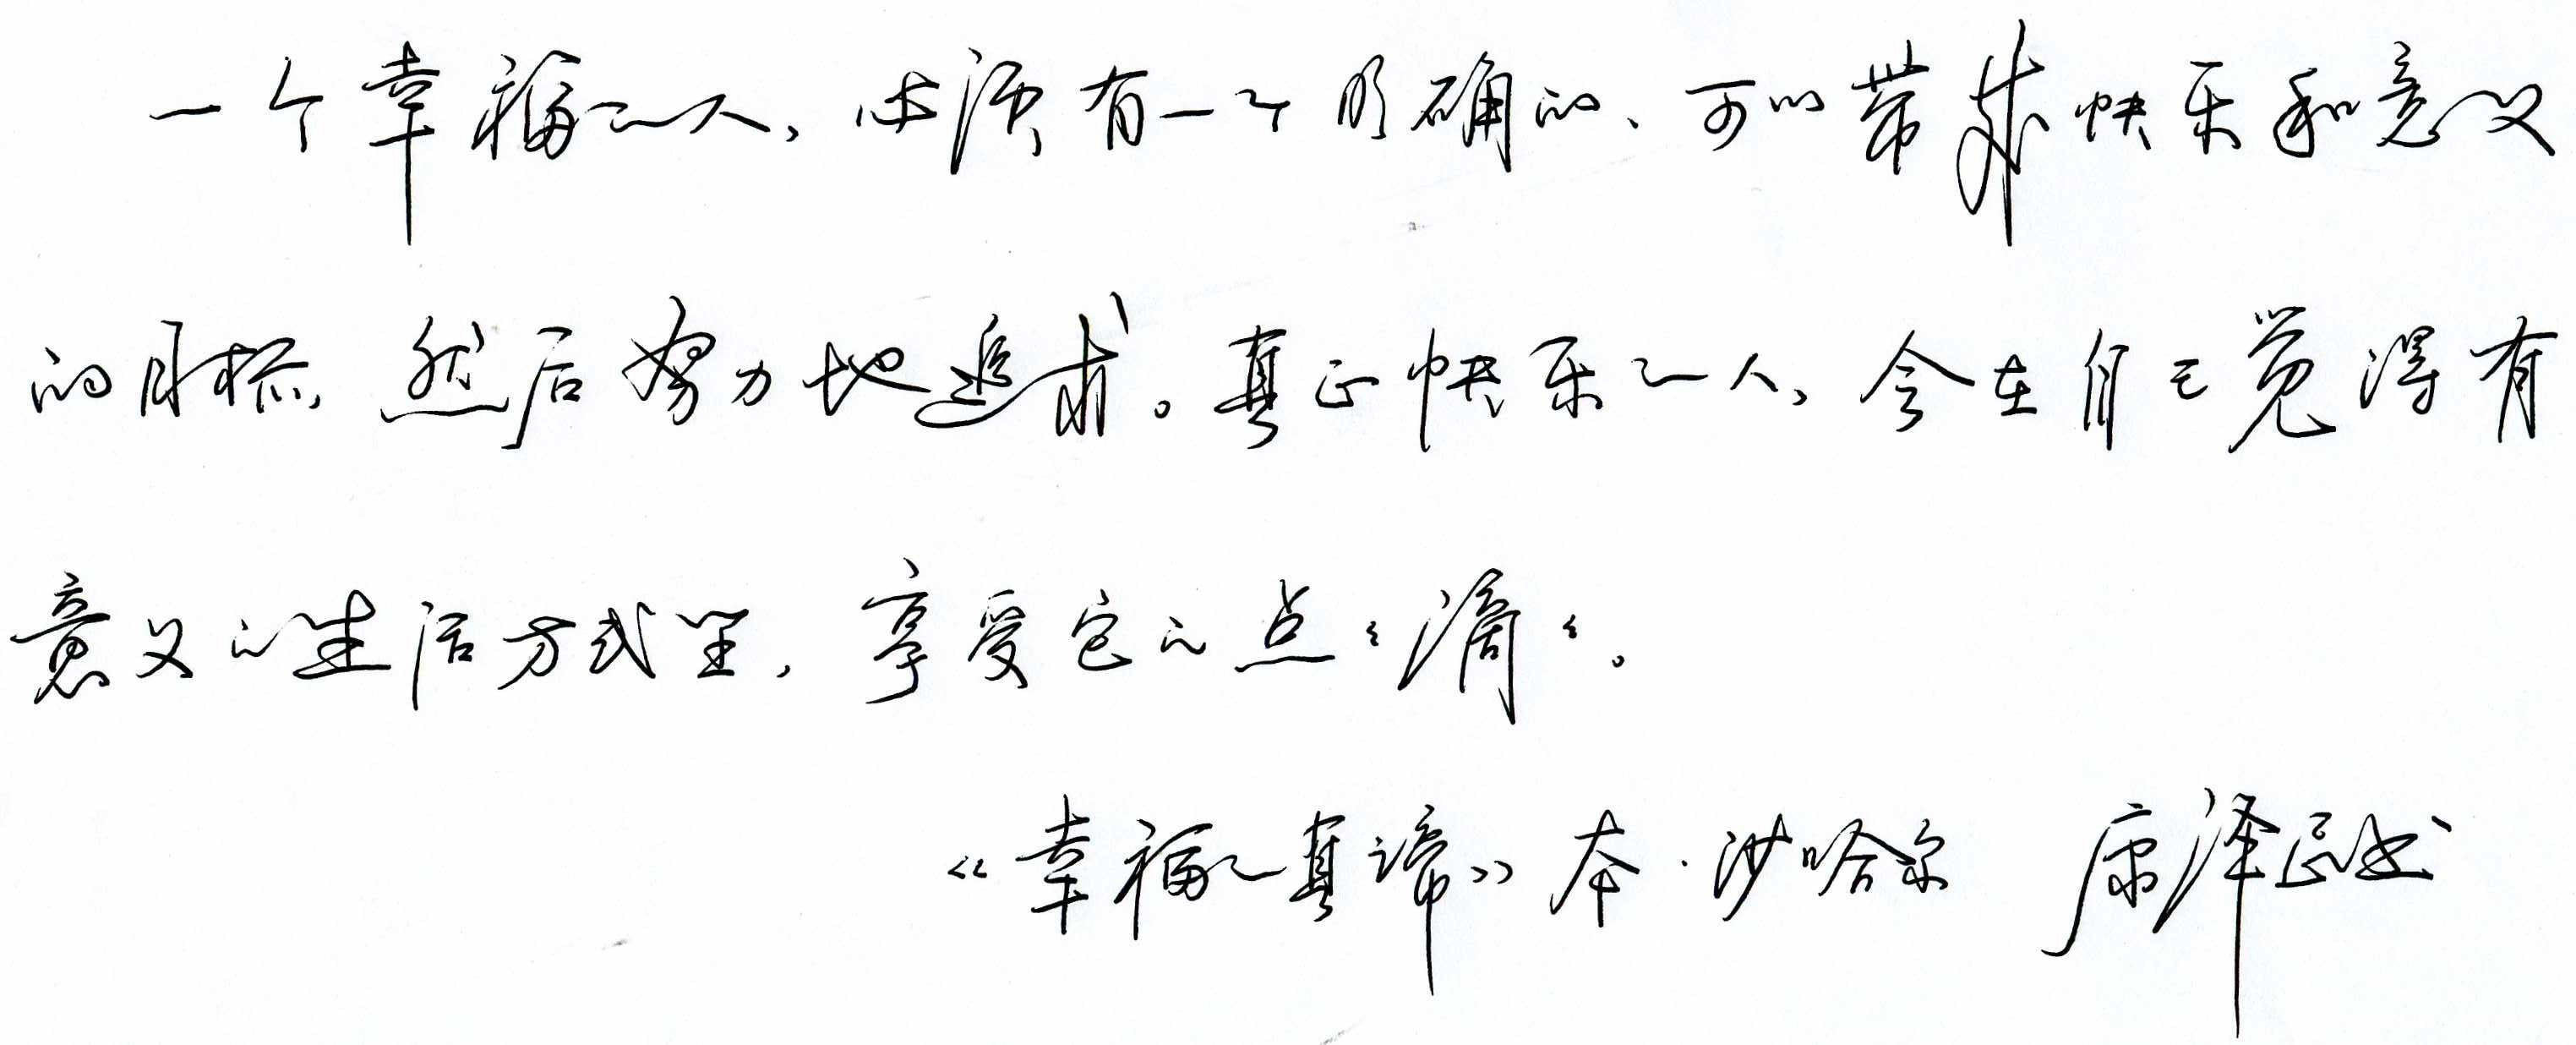 一个幸福的人，必须有一个明确的、可以带来快乐和意义
的目标，然后努力地追求。真正快乐的人，会在自己觉得有
意义的生活方式里，享受它的点点滴滴。
《幸福的真谛》本·沙哈尔 康泽恩书